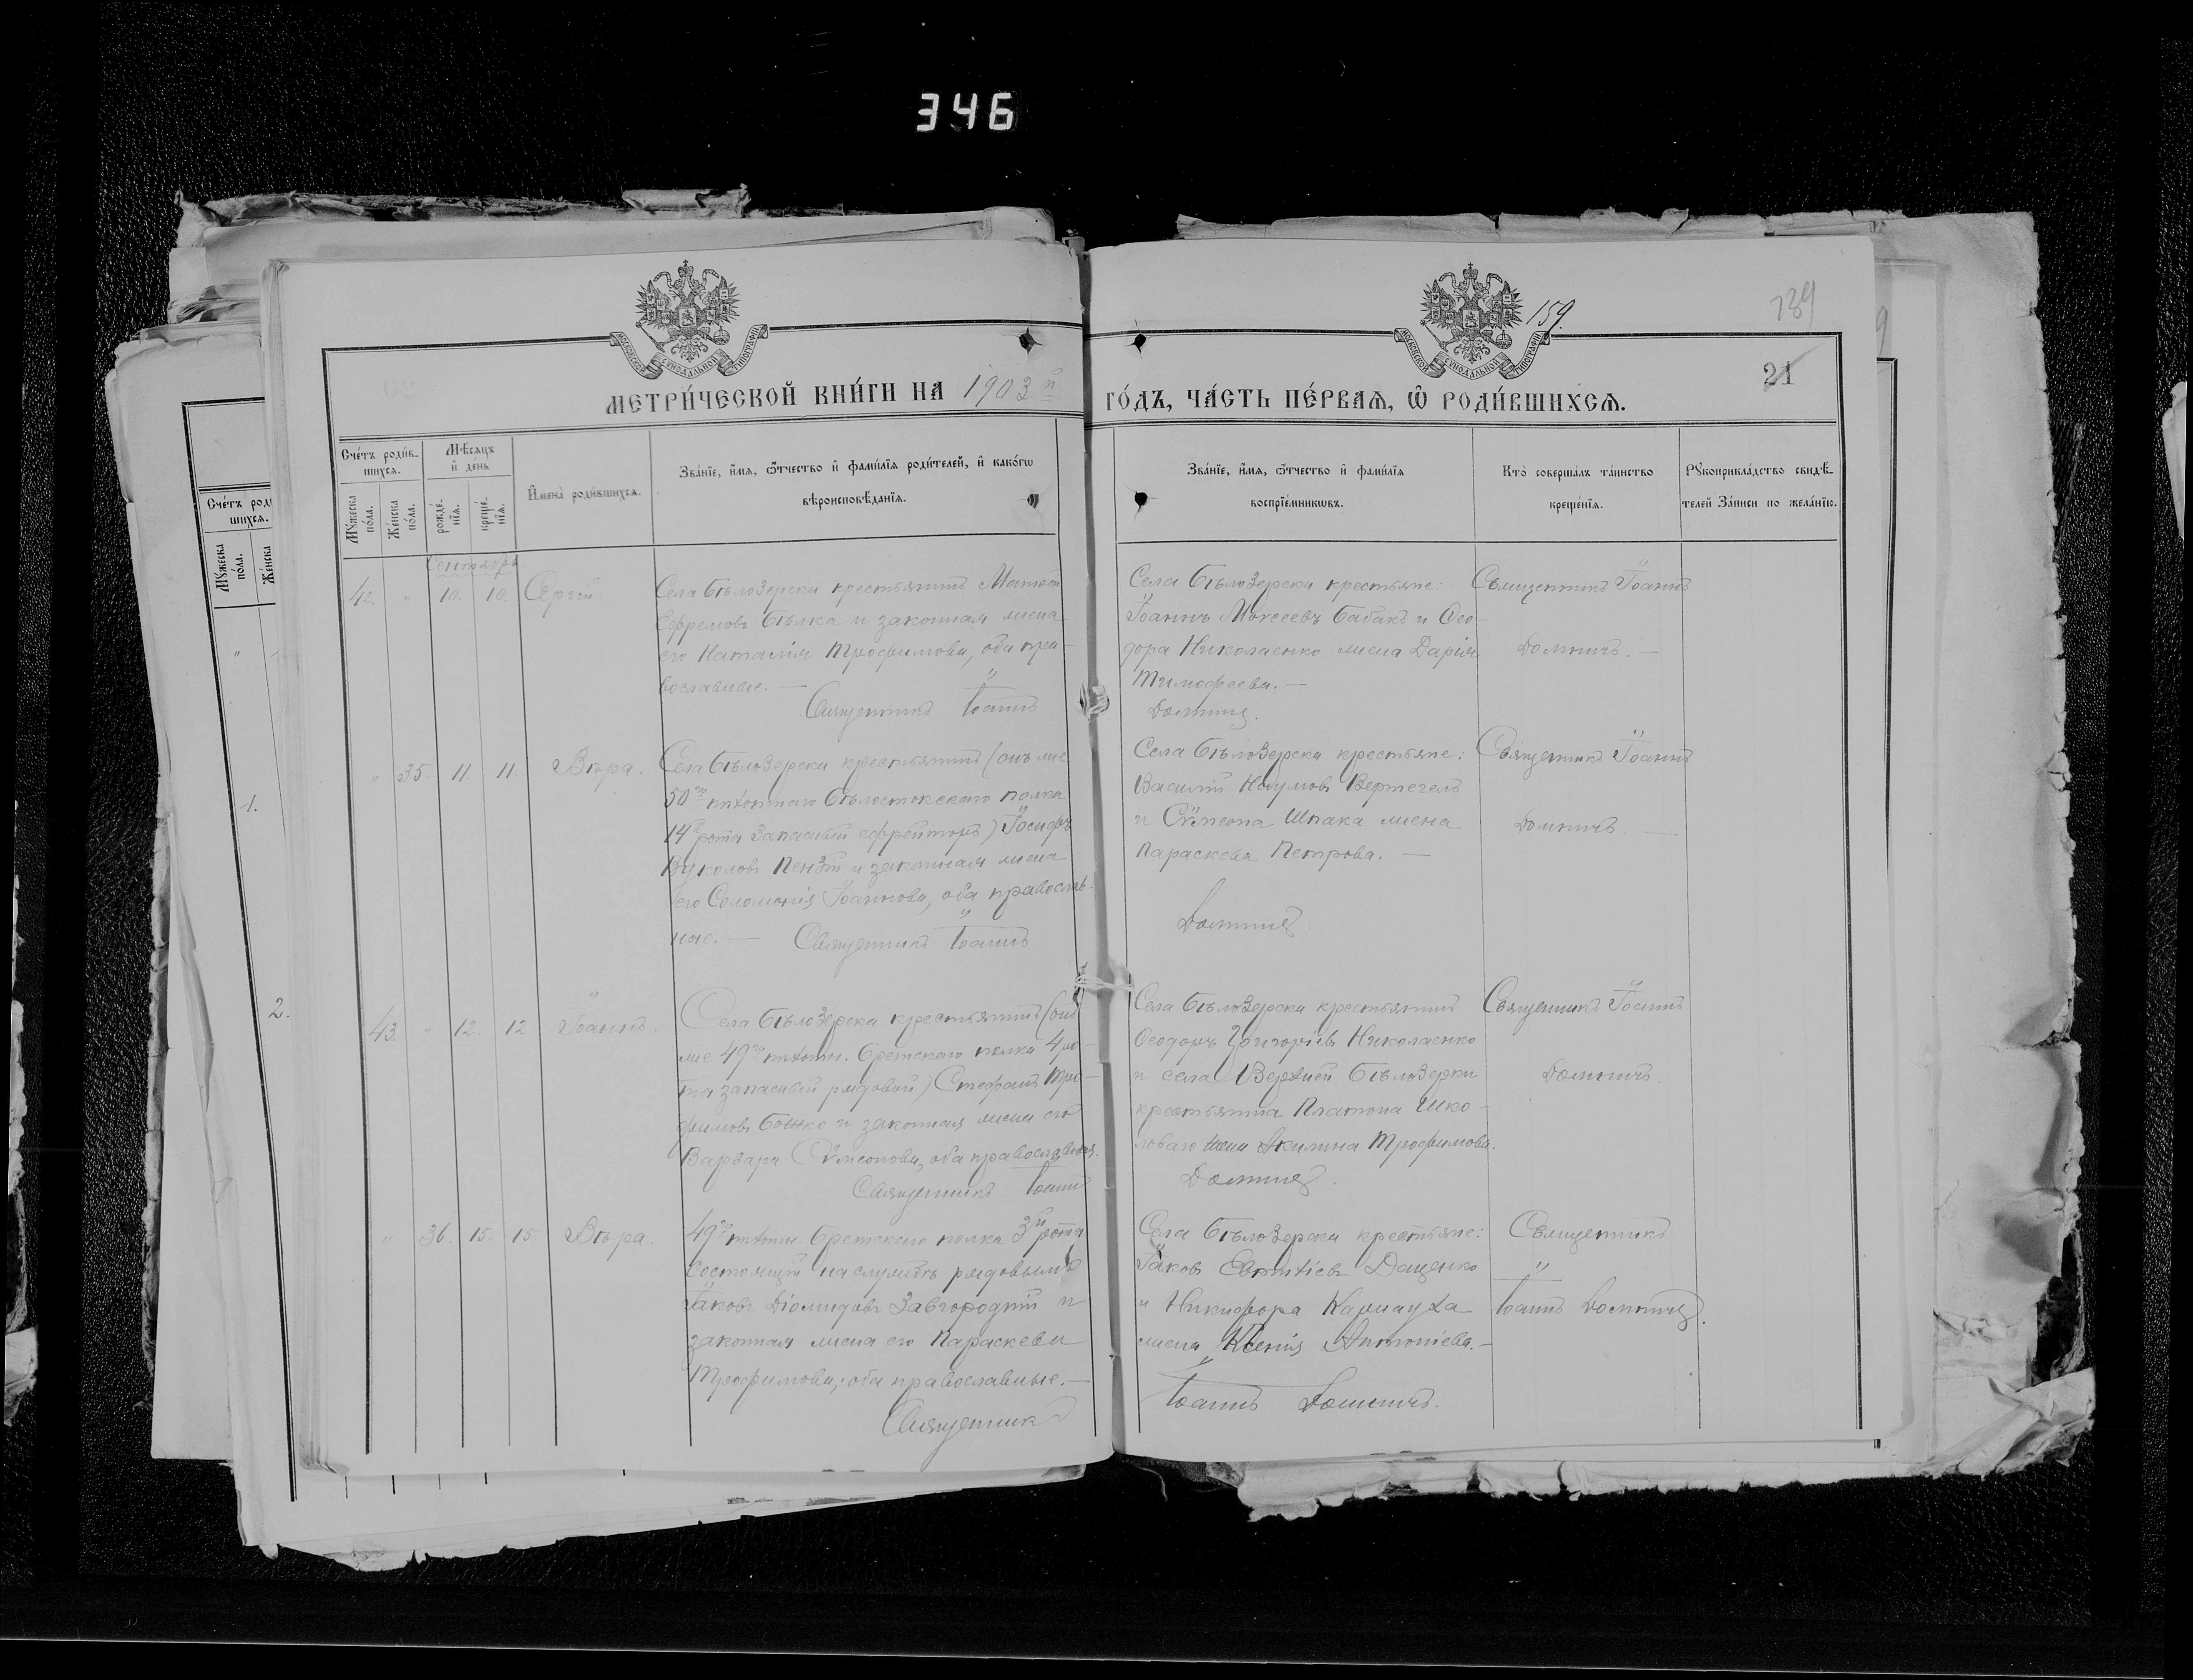 346
159.
739
21
МОСКОВСКОЙ СѴНОДАЛЬНОЙ ТИПОГРАФІИ
МОСКОВСКОЙ СѴНОДАЛЬНОЙ ТИПОГРАФІИ
МЕТРИ́ЧЕСКОЙ КНИ́ГИ НА 1903й ГО́ДЪ, ЧА́СТЬ ПЕ́РВАѦ, Ѡ҆ РОДИ́ВШИХСѦ.
Сче́тъ роди́в-
шихсѧ.
Мꙋ́жеска по́ла.
Же́нска по́ла.
Мѣ́сѧцъ
и҆ де́нь
рожде́-
нїѧ.
креще́-
нїѧ.
И҆мена̀ роди́вшихсѧ.
Зва́нїе, и҆́мѧ, ѻ҆́тчество и҆ фами́лїѧ роди́телей, и҆ како́гѡ
вѣроисповѣ́данїѧ.
Зва́нїе, и҆́мѧ, ѻ҆́тчество и҆ фами́лїѧ
воспрїе́мникѡвъ.
Кто̀ соверша́лъ та́инство
креще́нїѧ.
Рꙋкоприкла́дство свидѣ́-
телей за́писи по жела́нїю.
Сче́тъ род
шихсѧ.
Мꙋ́жеска по́ла.
Же́нска
1.
2.
Сентябрь
42. " 10. 10. Сергій.
Села Бѣлозерки крестьянинъ Матвѣй
Ефремовъ Бѣлка и законная жена
его Наталія Трофимова, оба пра-
вославные. —
Священникъ Іоаннъ
Села Бѣлозерки крестьяне:
Іоаннъ Моисеевъ Бабакъ и Ѳео-
дора Николаенко жена Дарія
Тимофеева. —
Доминъ.
Священникъ Іоаннъ
" 35 11. 11. Вѣра.
Села Бѣлозерки крестьянинъ (онъ же
50го пѣхотнаго Бѣлостокскаго полка
14й роты запасный ефрейторъ) Іосифъ
Вуколовъ и законная жена
его Соломонія Іоаннова, оба православ-
ные. — Священникъ Іоаннъ
Села Бѣлозерки крестьяне:
Василій Наумовъ Вертегелъ
и Сѵмеона Шпака жена
Параскева Петрова. —
Священникъ Іоаннъ
43. " 12. 12 Іоаннъ.
Села Бѣлозерки крестьянинъ (онъ
же 49го пѣхотн. Брестскаго полка 4 ро-
ты запасный рядовой) Стефанъ Тро-
фимовъ Божко и законная жена его
Варвара Сѵмеонова, оба православныя.
Священникъ Іоаннъ
Села Бѣлозерки крестьянинъ
Ѳеодоръ Григоріевъ Николаенко
и села Верхней Бѣлозерки
крестьянина Платона Шко-
жена Акилина Трофимова.
Священникъ Іоаннъ
" 36. 15. 15. Вѣра.
49го пѣхотн. Брестскаго полка 3й роты
состоящій на службѣ рядовымъ
Іаковъ Діомидовъ Завгородній и
законная жена его Параскева
Трофимова, оба православные. —
Священникъ
Села Бѣлозерки крестьяне:
Іаковъ Евтихіевъ Даценко
и Никифора Карнауха
жена Ксенія Антоніева. —
Священникъ